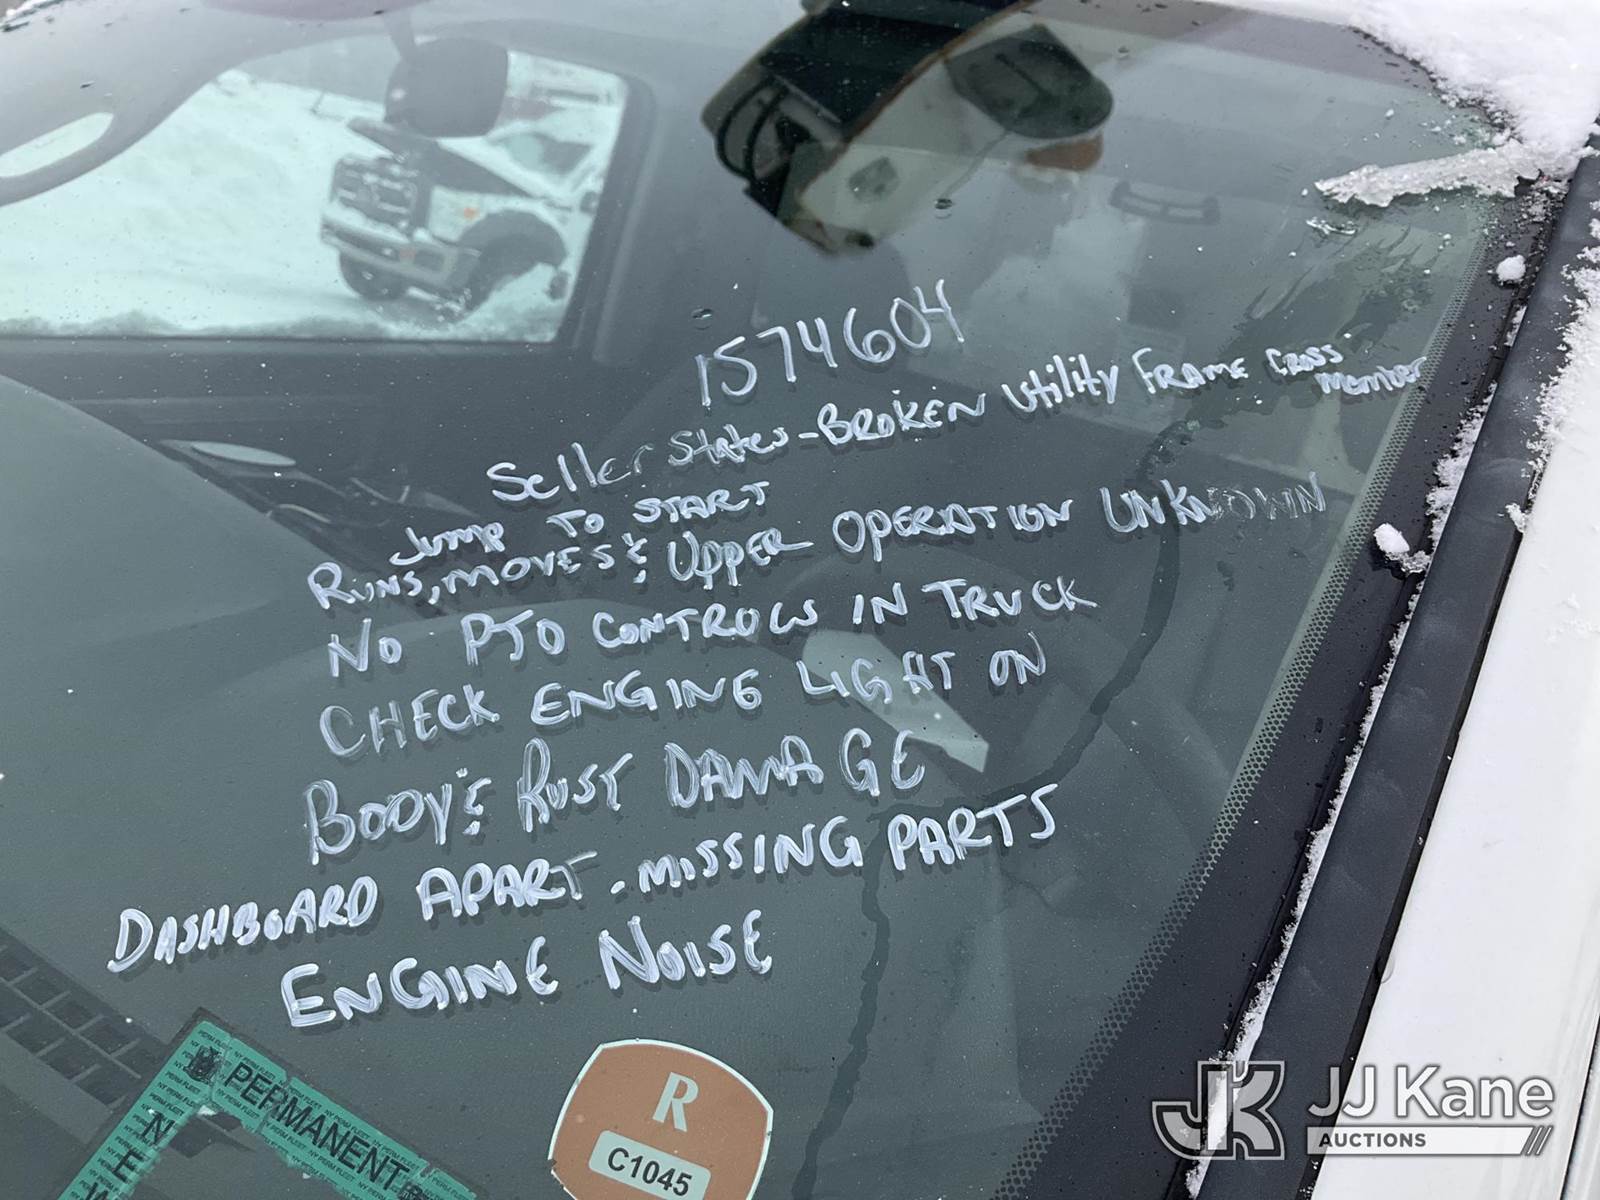 1574604
Seller States-Broken Utility Frame Cross
Member
Jump To START
Runs, moves & Upper OPERATION UNKNOWN
NO PTO CONTROLS IN TRUCK
CHECK ENGINE LIGHT ON
BODY & RUST DAMAGE
DASHBOARD APART - MISSING PARTS
ENGINE NOISE
PERMANENT
NEW
NY PERM FLEET
R
C1045
JK
JJ Kane
AUCTIONS